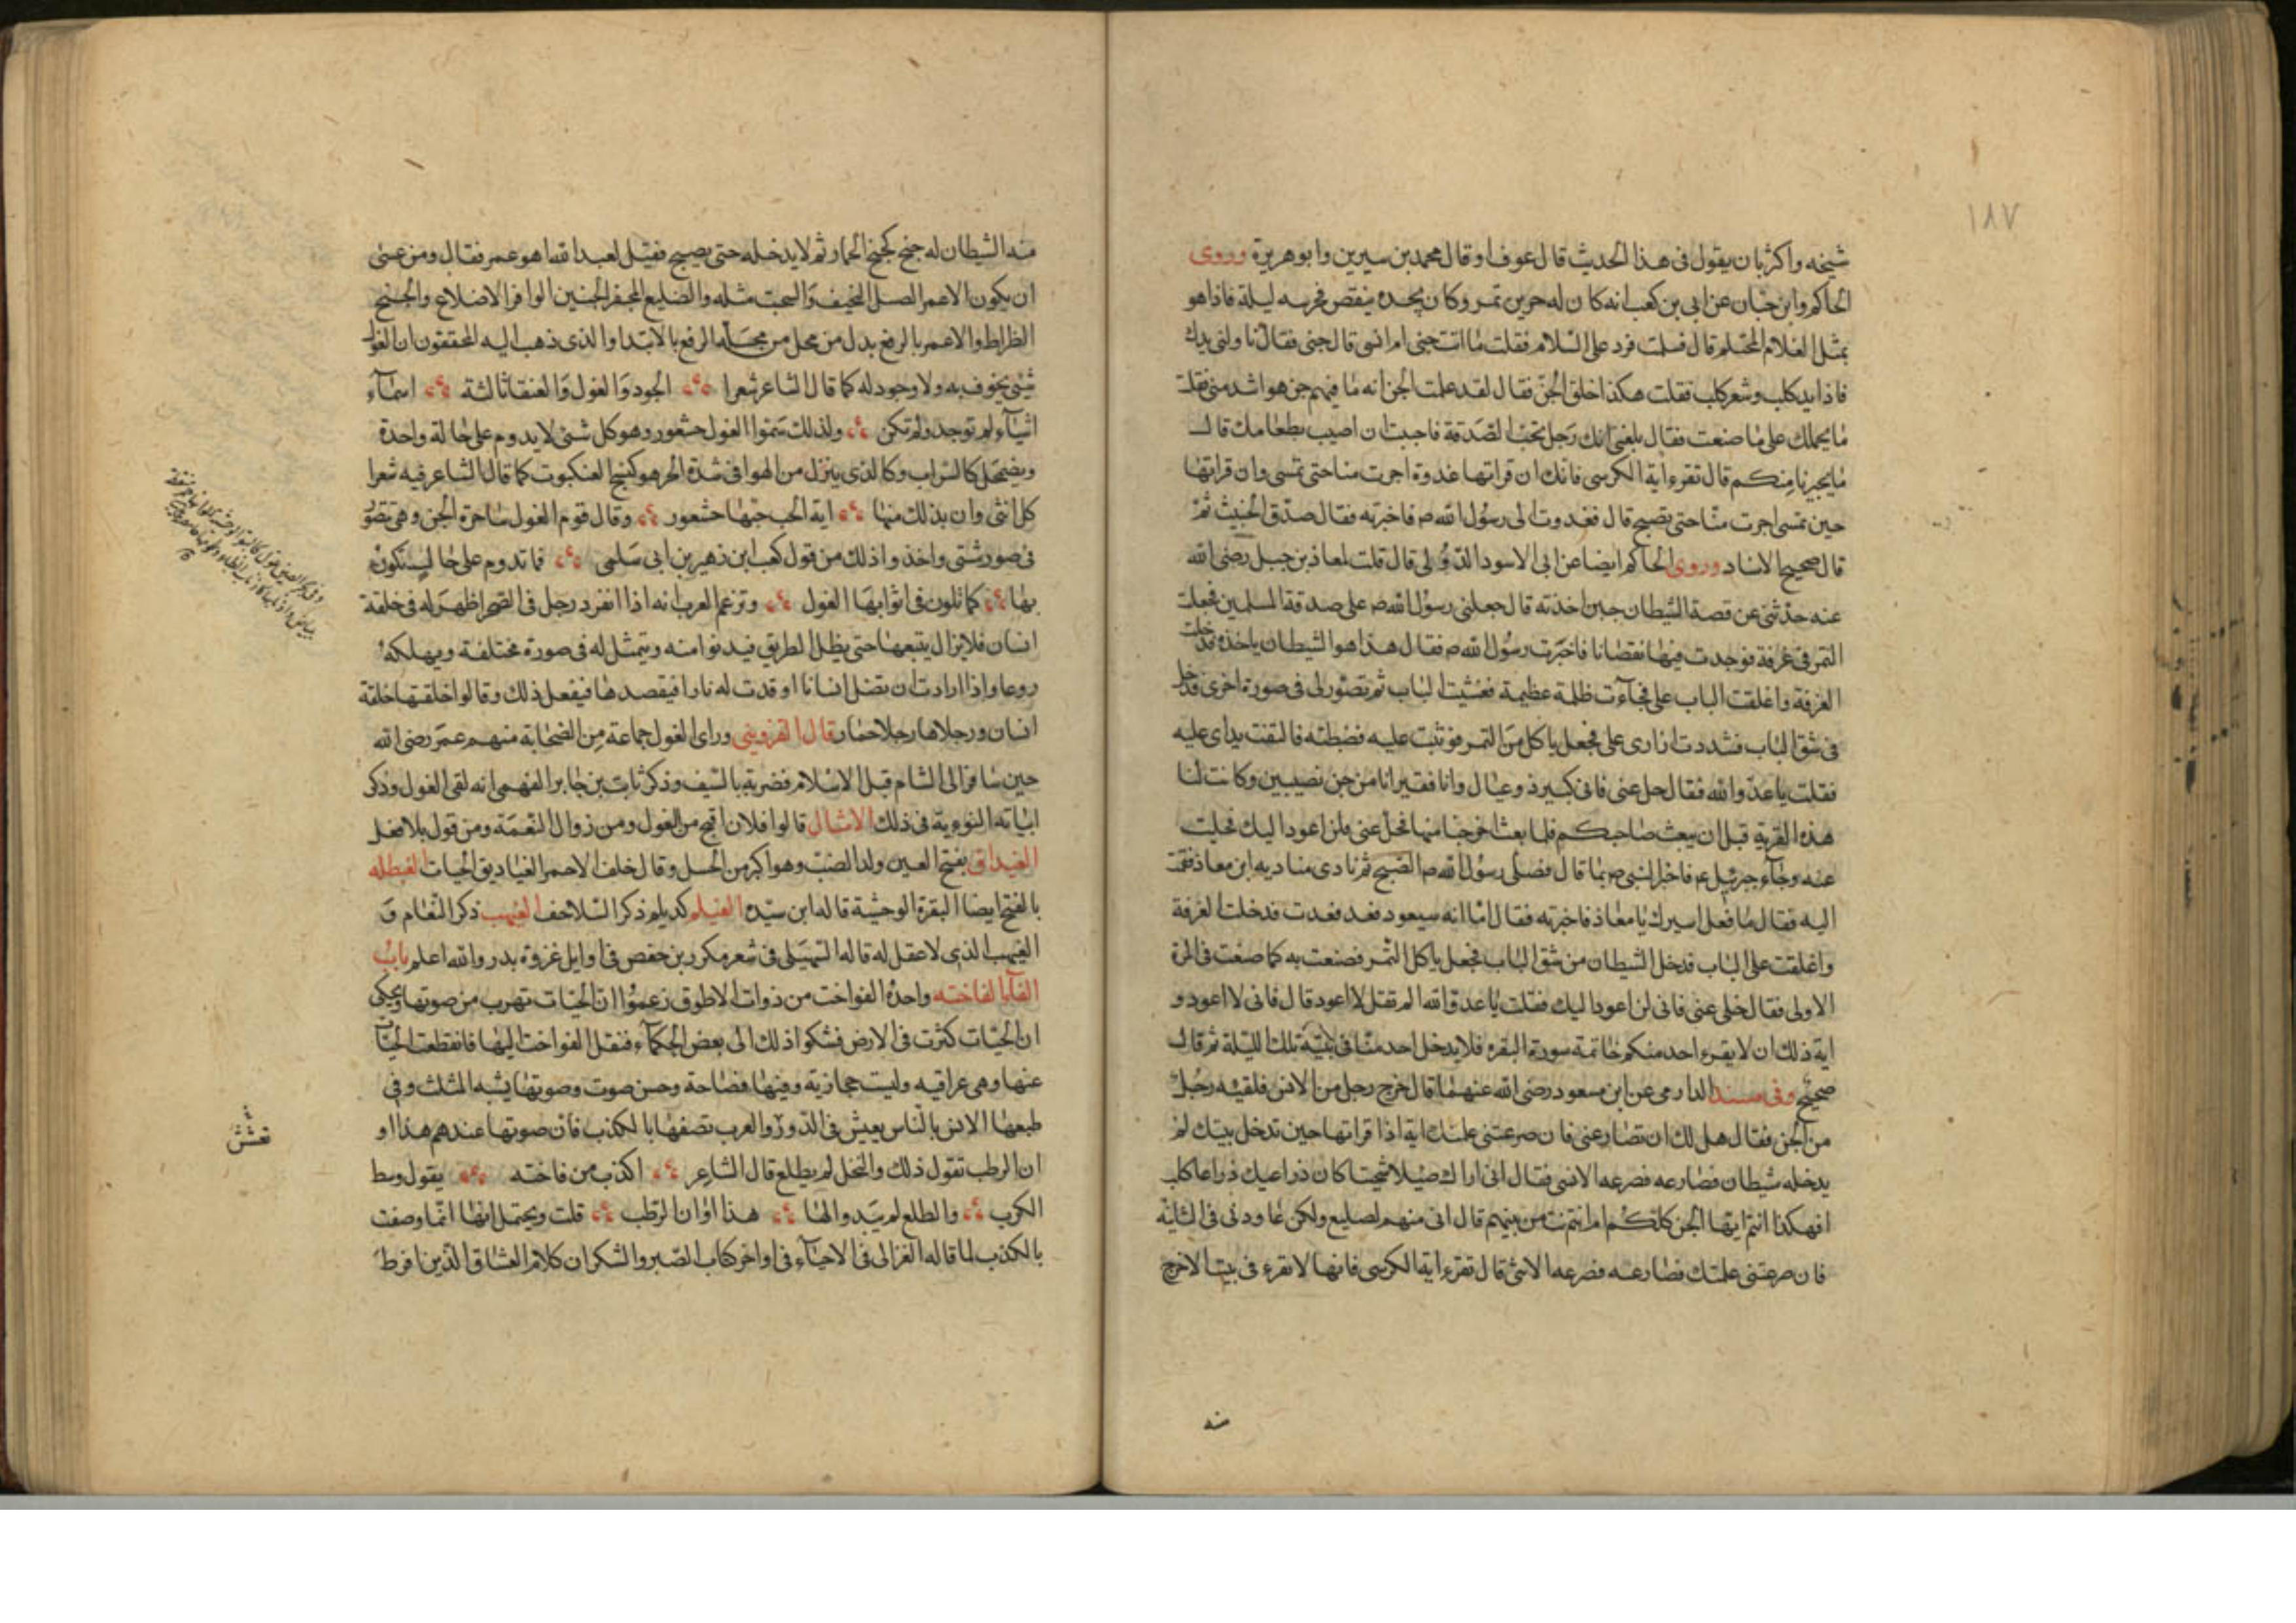 ١٨٧
شيخه واكثر بان يقول فى هذا الحديث قال عوف او قال محمد بن سيرين وابو هريرة وروى
الحاكم وابن حبان عن ابى بن كعب انه كان له جرين تمر وكان يجده ينقص فحرسه ليلة فاذا هو
بمثل الغلام المحتلم قال فسلمت فرد على السلام فقلت ما انت جنى ام انسى قال جنى فقال ناولنى يدك
فاذا يد كلب وشعر كلب فقلت هكذا خلق الجن فقال لقد علمت الجن انه ما فيهم من هو اشد منى فقلت
ما يحملك على ما صنعت فقال بلغنى انك رجل تحب الصدقة فاحببت ان اصيب بطعامك قال
ما يجيرنا منكم قال تقرء اية الكرسى فانك ان قراتها غدوة اجرت منا حتى تمسى وان قراتها
حين تمسى اجرت منا حتى تصبح قال فغدوت الى رسول الله ص فاخبرته فقال صدق الخبيث ثم
قال صحيح الاسناد وروى الحاكم ايضا عن ابى الاسود الدؤلى قال قلت لمعاذ بن جبل رضى الله
عنه حدثنى عن قصة الشيطان حين اخذته قال جعلنى رسول الله ص على صدقة المسلمين فجعلت
التمر فى غرفة فوجدت فيها نقصانا فاخبرت رسول الله ص فقال هذا هو الشيطان ياخذه فدخلت
الغرفة واغلقت الباب على فجاءت ظلمة عظيمة فغشيت الباب ثم تصور لى فى صورة اخرى فدخل
فى شق الباب فشددت ازارى على فجعل ياكل من التمر فوثبت عليه فضبطته فالتقت يداى عليه
فقلت يا عدو الله فقال خل عنى فانى كبير ذو عيال وانا فقير انا من جن نصيبين وكانت لنا
هذه القرية قبل ان يبعث صاحبكم فلما بعث اخرجنا منها فخل عنى فلن اعود اليك فخليت
عنه وجاء جبرئيل ع فاخبر النبى ص بما قال فصلى رسول الله ص الصبح ثم نادى مناديه اين معاذ فقمت
اليه فقال ما فعل اسيرك يا معاذ فاخبرته فقال اما انه سيعود فعد فعدت فدخلت الغرفة
واغلقت على الباب فدخل الشيطان من شق الباب فجعل ياكل التمر فصنعت به كما صنعت فى المرة
الاولى فقال خلى عنى فانى لن اعود اليك فقلت يا عدو الله الم تقل لا اعود قال فانى لا اعود و
اية ذلك ان لا يقرء احد منكم خاتمة سورة البقره فلا يدخل احد منا فى بيته تلك الليلة ثم قال
صحيح وفى مسند الدارمى عن ابن مسعود رضى الله عنهما قال خرج رجل من الانس فلقيه رجل
من الجن فقال هل لك ان تصارعنى فان صرعتنى علمتك اية اذا قراتها حين تدخل بيتك لم
يدخله شيطان فصارعه فصرعه الانسى فقال انى اراك ضئيلا شخيتا كان ذراعيك ذراعا كلب
افهكذا انتم ايها الجن كلكم ام انت من بينهم قال انى منهم لضليع ولكن عاودنى فى الثانية
فان صرعتنى علمتك فصارعه فصرعه الانسى قال تقرء اية الكرسى فانها لا تقرء فى بيت الا خرج
منه
منه الشيطان له خبج كخبج الحمار ثم لا يدخله حتى يصبح فقيل لعبد الله اهو عمر فقال ومن عسى
ان يكون الا عمر الضئيل النحيف والشخت مثله والضليع المجفر الجنبين الوافر الاضلاع والخبج
الظراط والا عمر بالرفع بدل من محل من محله الرفع بالابتدا والذى ذهب اليه المحققون ان الغول
شئ يخوف به ولا وجود له كما قال الشاعر شعرا الجود والغول والعنقا ثالثة اسماء
اشياء لم توجد ولم تكن ولذلك سموا الغول خيثعور وهو كل شئ لا يدوم على حالة واحدة
ويضمحل كالسراب وكالذى ينزل من الهوا فى شدة الحر هو كنسج العنكبوت كما قال الشاعر فيه شعرا
كل انثى وان بدا لك منها اية الحب حبها خيثعور وقال قوم الغول ساحرة الجن وهى تتصور
فى صور شتى واخذوا ذلك من قول كعب ابن زهير بن ابى سلمى فما تدوم على حال تكون
بها كما تلون فى اثوابها الغول وتزعم العرب انه اذا انفرد رجل فى الصحرا ظهر له فى خلقة
انسان فلا يزال يتبعها حتى يظل الطريق فيدنوا منه ويتمثل له فى صورة مختلفة ويهلكه
روعا واذا ارادت ان تضل انسانا اوقدت له نارا فيقصدها فيفعل ذلك وقالوا خلقتها خلقة
انسان ورجلاها رجلا حمار قال القزوينى وراى الغول جماعة من الصحابة منهم عمر رضى الله
حين سافر الى الشام قبل الاسلام فضربه بالسيف وذكر ثابت بن جابر الفهمى انه لقى الغول وذكر
ابياته النونية فى ذلك الامثال قالوا فلان اقبح من الغول ومن زوال النعمة ومن قول بلا فعل
الغيداق بفتح الغين ولد الضب وهو اكبر من الحسل وقال خلف الاحمر الغياديق الحيات الغيطله
بالفتح ايضا البقرة الوحشية قاله ابن سيده الغيلم كديلم ذكر السلاحف الغيهب ذكر النعام و
الغيهب الذى لا عقل له قاله السهيلى فى شعر مكرز بن حفص فى اوايل غزوة بدر والله اعلم باب
الفا الفاخته واحدة الفواخت من ذوات الاطوق زعموا ان الحيات تهرب من صوتها ويحكى
ان الحيات كثرت فى الارض فشكوا ذلك الى بعض الحكماء فنقل الفواخت اليها فانقطعت الحيات
عنها وهى عراقيه وليست حجازية وفيها فصاحة وحسن صوت وصوتها يشبه المثلث وفى
طبعها الانس بالناس يعيش فى الدور والعرب تصفها بالكذب فان صوتها عندهم هذا او
ان الرطب تقول ذلك والنخل لم يطلع قال الشاعر اكذب من فاخته يقول وسط
الكرب والطلع لم يبد والها هذا اوان الرطب قلت ويحتمل انها انما وصفت
بالكذب لما قاله الغزالى فى الاحياء فى اواخر كتاب الصبر والشكر ان كلام العشاق الذين افرط